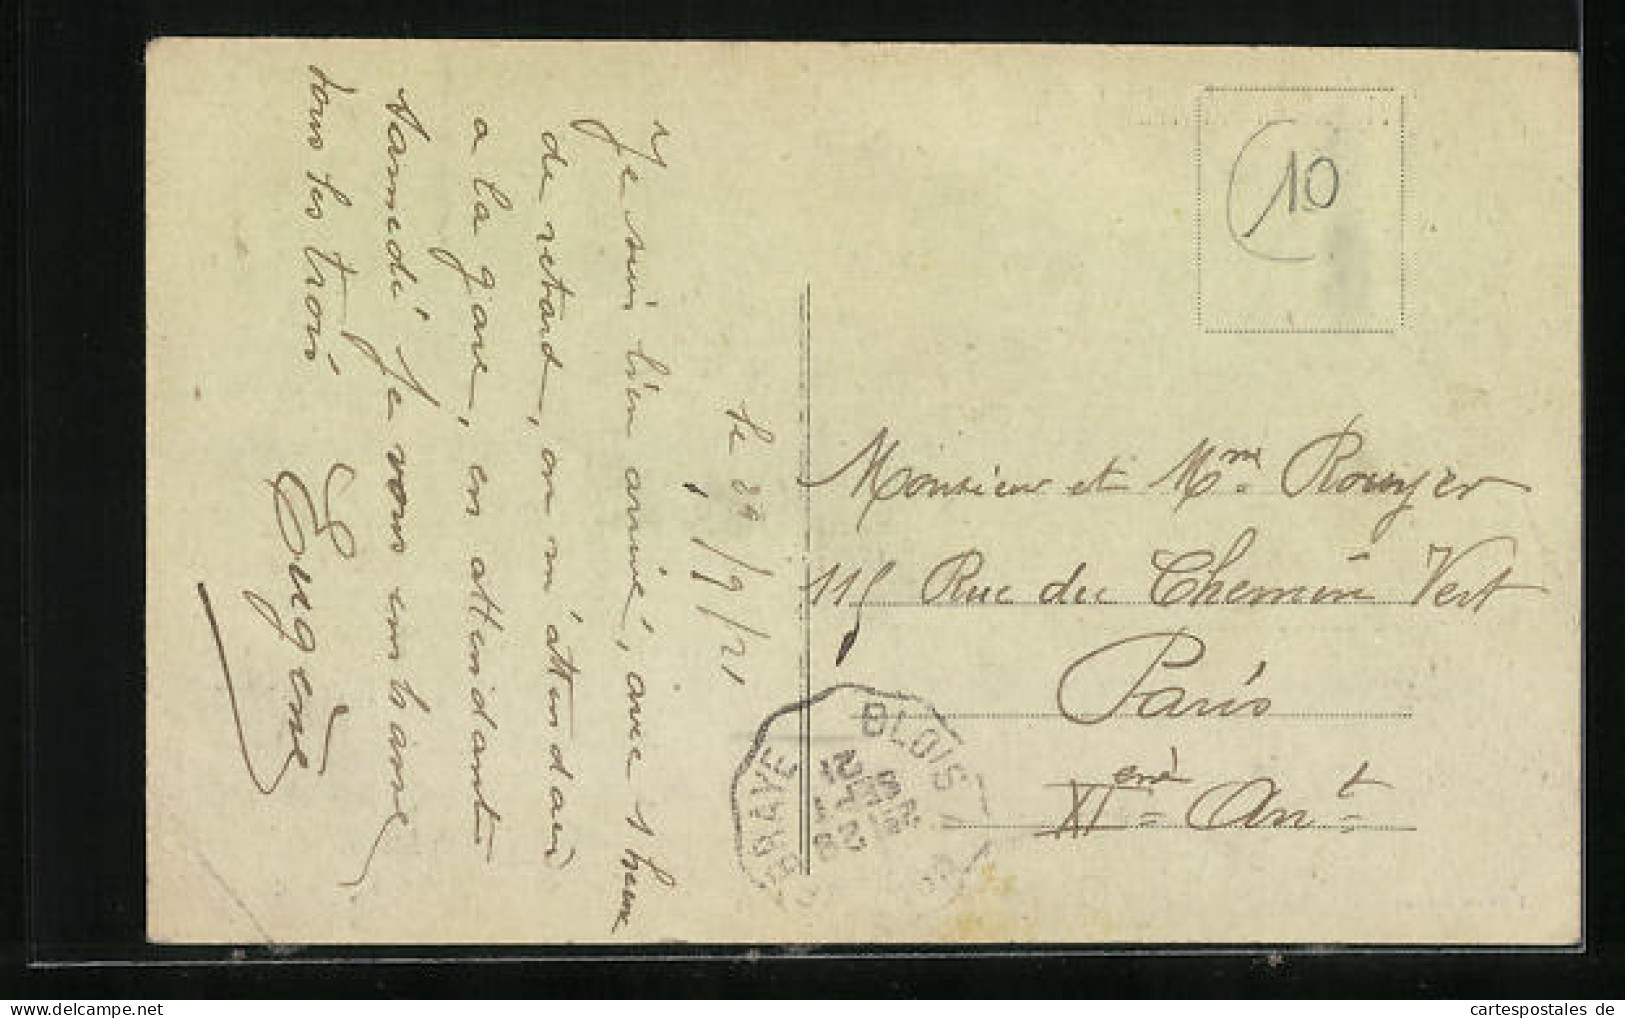 le 29/9/21
Je suis bien arrivé, avec 1 heure
de retard, on m'attendait
a la gare, en attendant
samedi Je vous embrasse
tous les trois
Eugène
10
Monsieur et Mme Rouyer
115 Rue du Chemin Vert
Paris
XIeme Arrt
BLOIS
BRAYE
cartespostales de